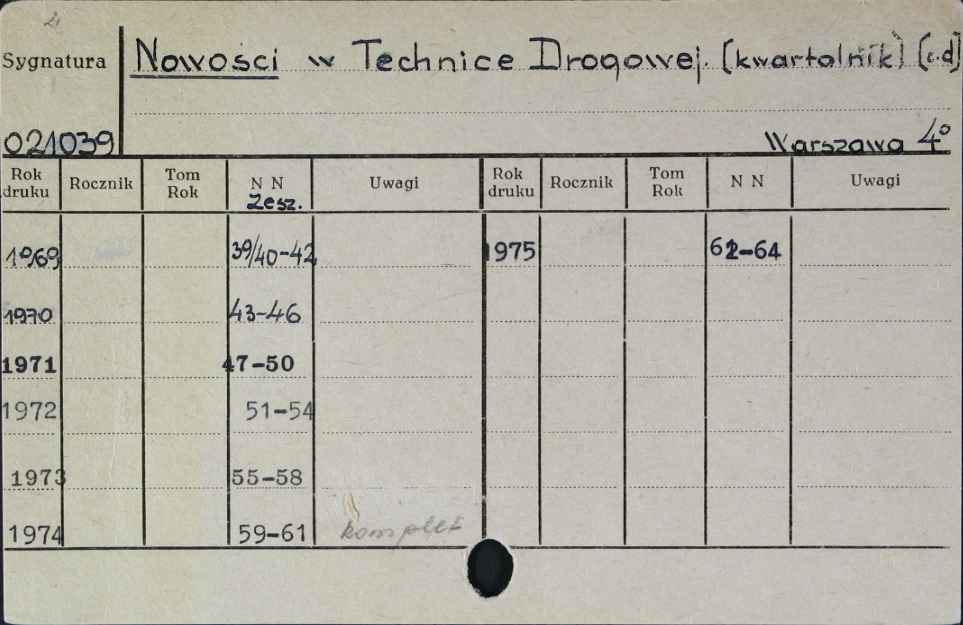 2,
Sygnatura
Nowości w Technice Drogowej. (kwartalnik) (c.d)
021039
Warszawa 4°
Rok druku Rocznik Tom Rok N N Zesz. Uwagi Rok druku Rocznik Tom Rok N N Uwagi
1969 39/40-42 1975 62-64
1970 43-46
1971 47-50
1972 51-54
1973 55-58
1974 59-61 komplet